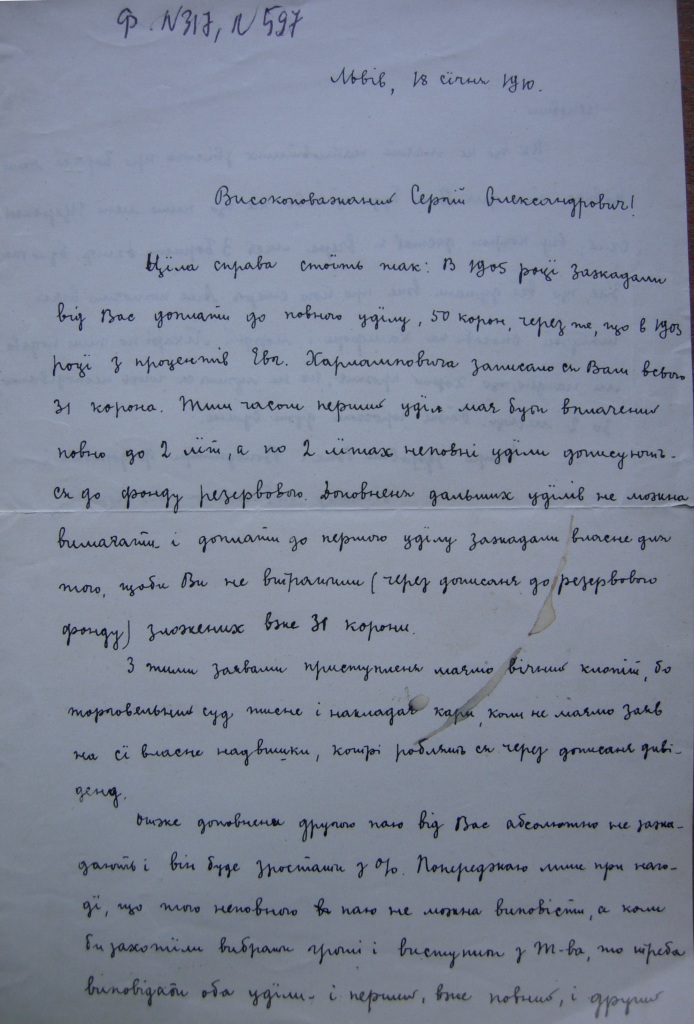 Ф. N317, N 597
Львів, 18 січня 1910.
Високоповажаний Сергій Олександрович!
Ціла справа стоїть так: В 1905 році зажадали
від Вас доплати до повного уділу, 50 корон, через те, що в 1903
році з процентів Евг. Харлямповича записало ся Вам всього
31 корона. Тим часом перший уділ має бути вплачений
повно до 2 літ, а по 2 літах неповні уділи дописують-
ся до фонду резервового. Доповненя дальших уділів не можна
вимагати і доплати до першого уділу зажадали власне для
того, щоби Ви не витратили (через дописанє до резервового
фонду) зложених вже 31 корони.
З тими заявами приступленя маємо вічний клопіт, бо
торговельний суд тисне і накладає кари, коли не маємо заяв
на сї власне надвишки, котрі роблять ся через дописанє диві-
денд.
Отже доповненя другого паю від Вас абсолютно не зажа-
дають і він буде зростати з %. Попереджаю лише при наго-
ді, що того неповного паю не можна виповісти, а коли
би захотіли вибрати гроші і виступити з Т-ва, то треба
виповідати оба уділи - і перший, вже повний, і другий